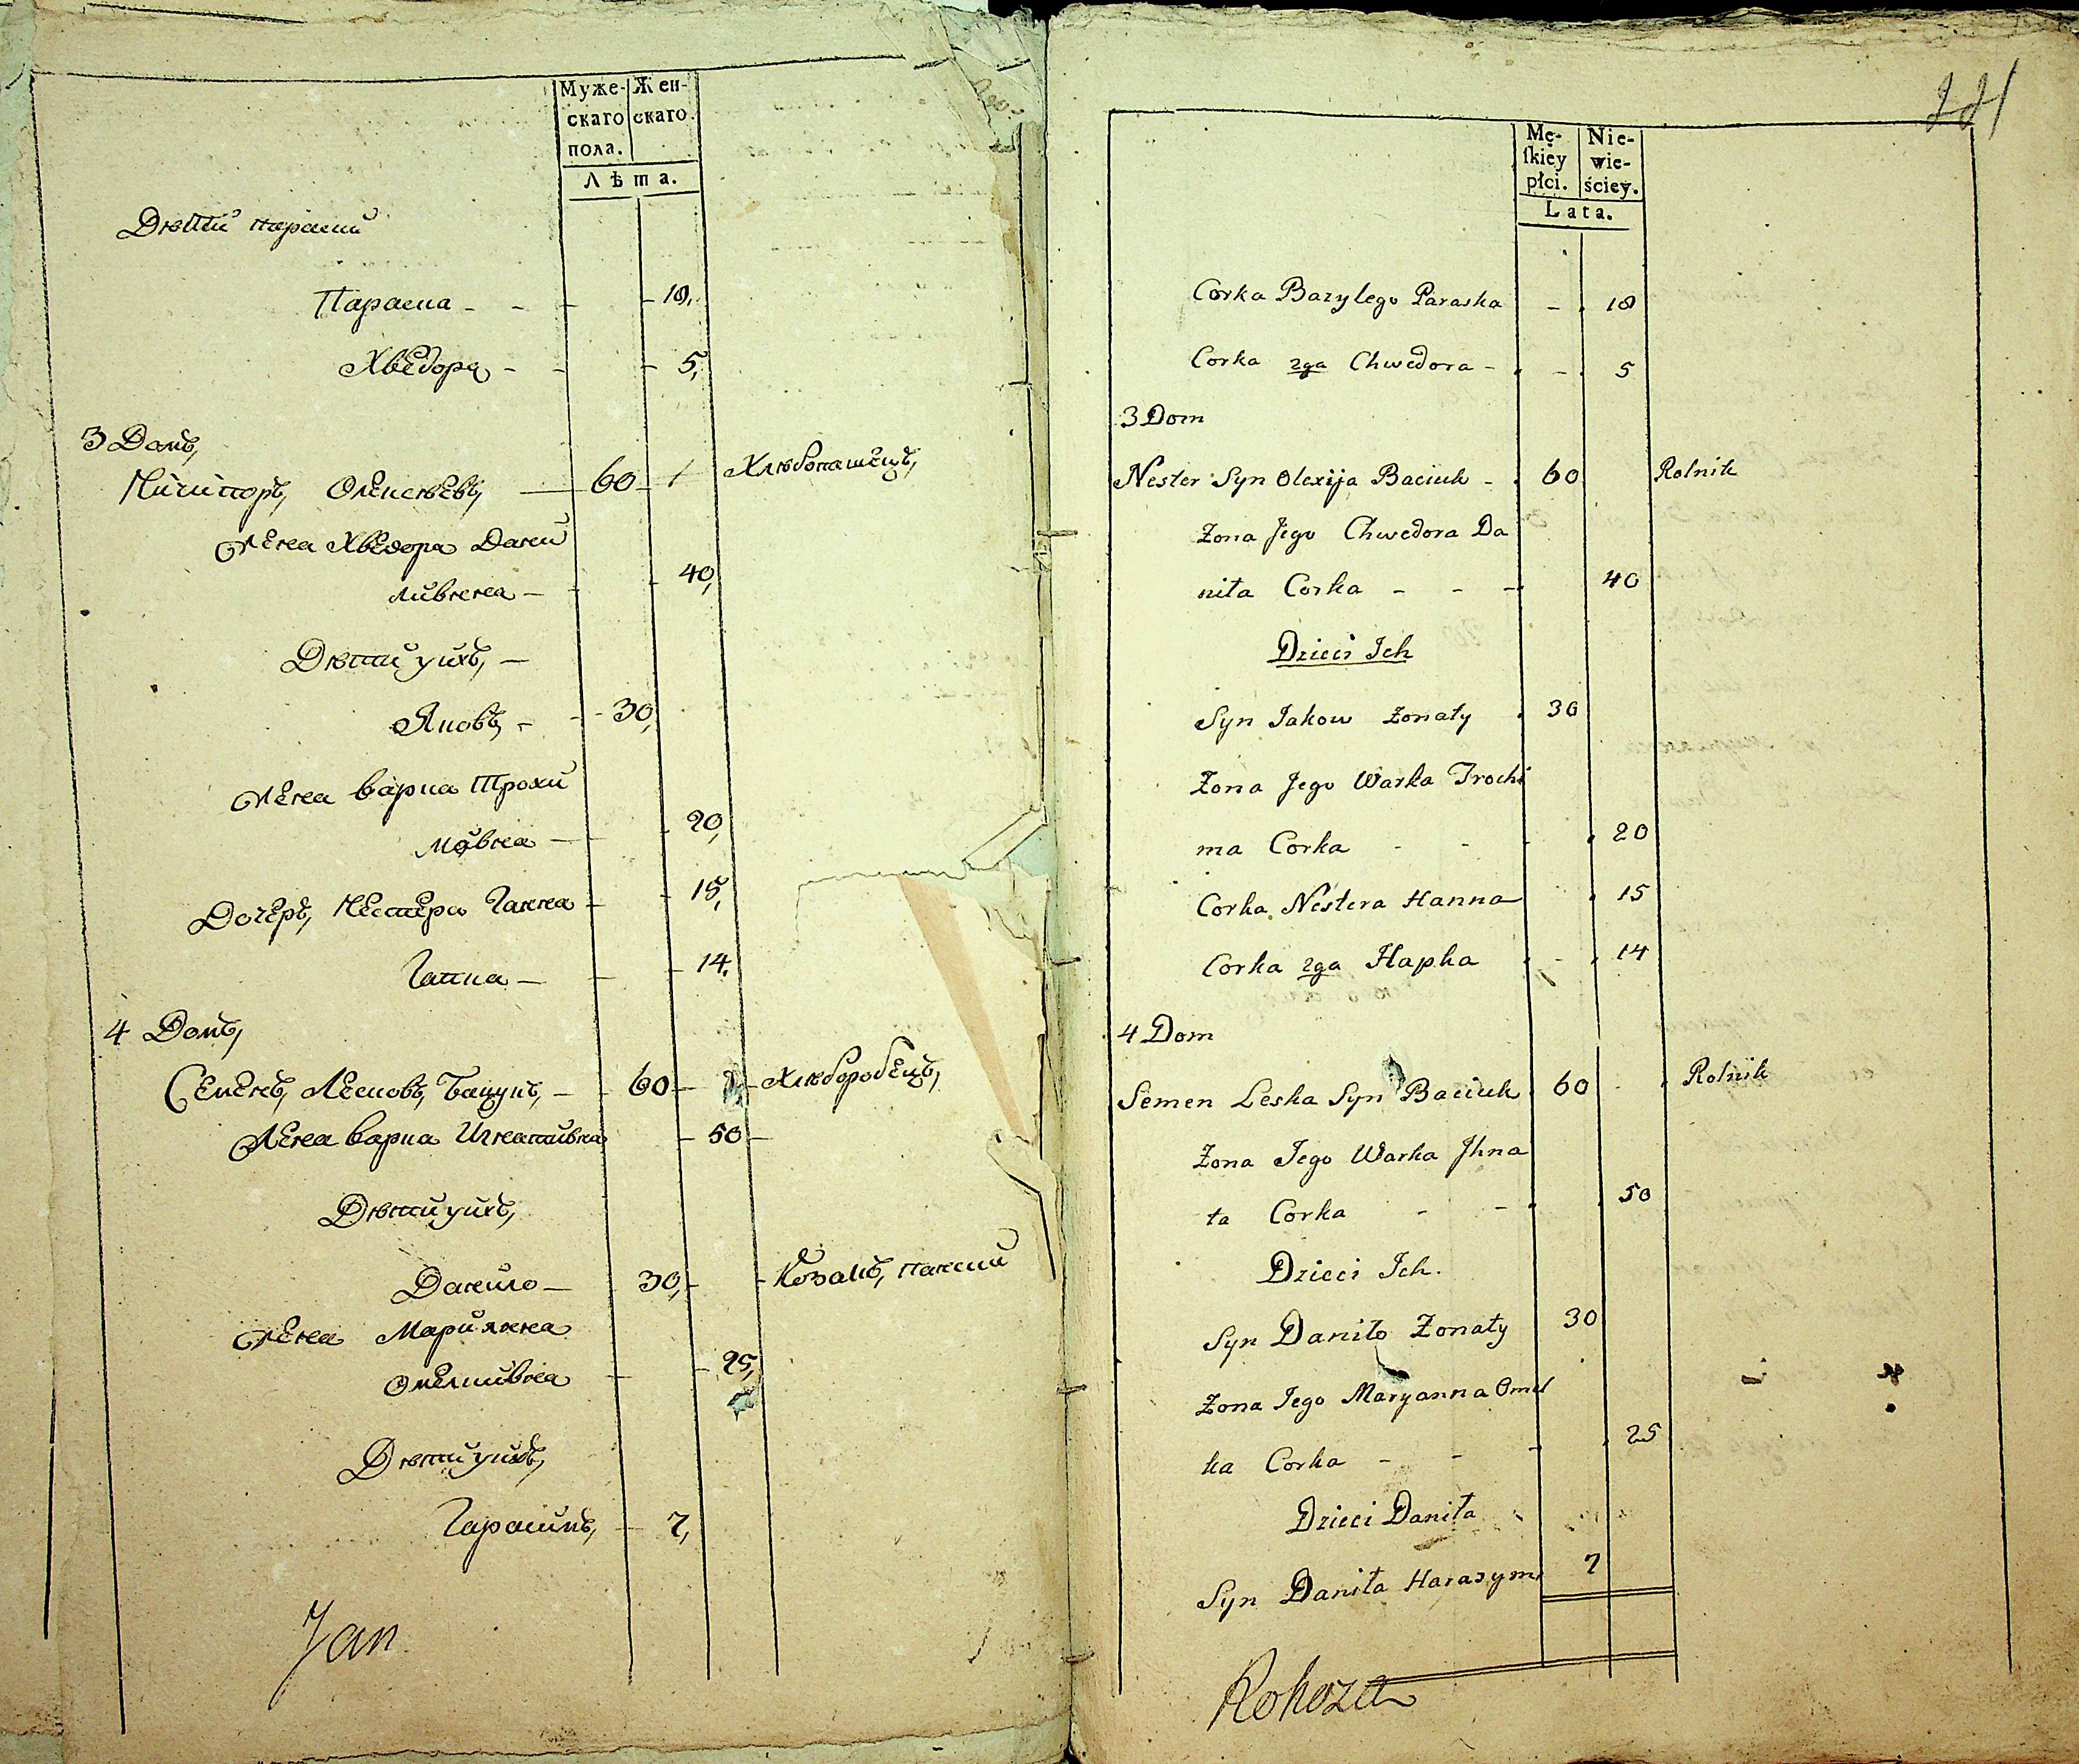 Муже-
скаго
пола.
Жен-
скаго.
Лѣта.
Дѣти параски
Параска - - - - 18,
Хведора - - - 5,
3 Домъ,
Ничипоръ, Олексѣевъ, — 60 - 1 Хлѣбопашецъ,
Жена Хведора Дани
ливнна — - - 40,
Дѣти ихъ, —
Яковъ, - - - 30,
Жена варка Трохи
мовна — - 20,
Дочеръ, Нестера Ганна - - 15,
Гапка — - - 14.
4 Домъ,
Семенъ, Лесковъ, Бацукъ, — - 60 — — Хлѣборобецъ,
Жена варка Игнатівна - 50 —
Дѣти ихъ,
Данило — 30, - - Коваль, панский
Жена Марианна
Омелкивна - - 25,
Дѣти ихъ,
Гарасимъ, - 7,
Jan
221
Mę-
ſkiéy
płci.
Nie-
wie-
ściéy.
Lata.
Corka Bazylego Paraska - 18
Corka 2ga Chwedora - - 5
3 Dom
Nester Syn Olexija Baciuk - 60 Rolnik
Zona Jego Chwedora Da
niła Corka - - - 40
Dzieci Ich
Syn Jakow Zonaty 30
Zona Jego Warka Trochi
ma Corka - - - 20
Corka Nestera Hanna 15
Corka 2ga Hapka - 14
4 Dom
Semen Leska Syn Baciuk 60 Rolnik
Zona Jego Warka Ihna
ta Corka - - 50
Dzieci Ich.
Syn Daniło Zonaty 30
Zona Jego Maryanna Omel
ka Corka - - - 25
Dzieci Daniła
Syn Daniła Harasym 7
Rohoza